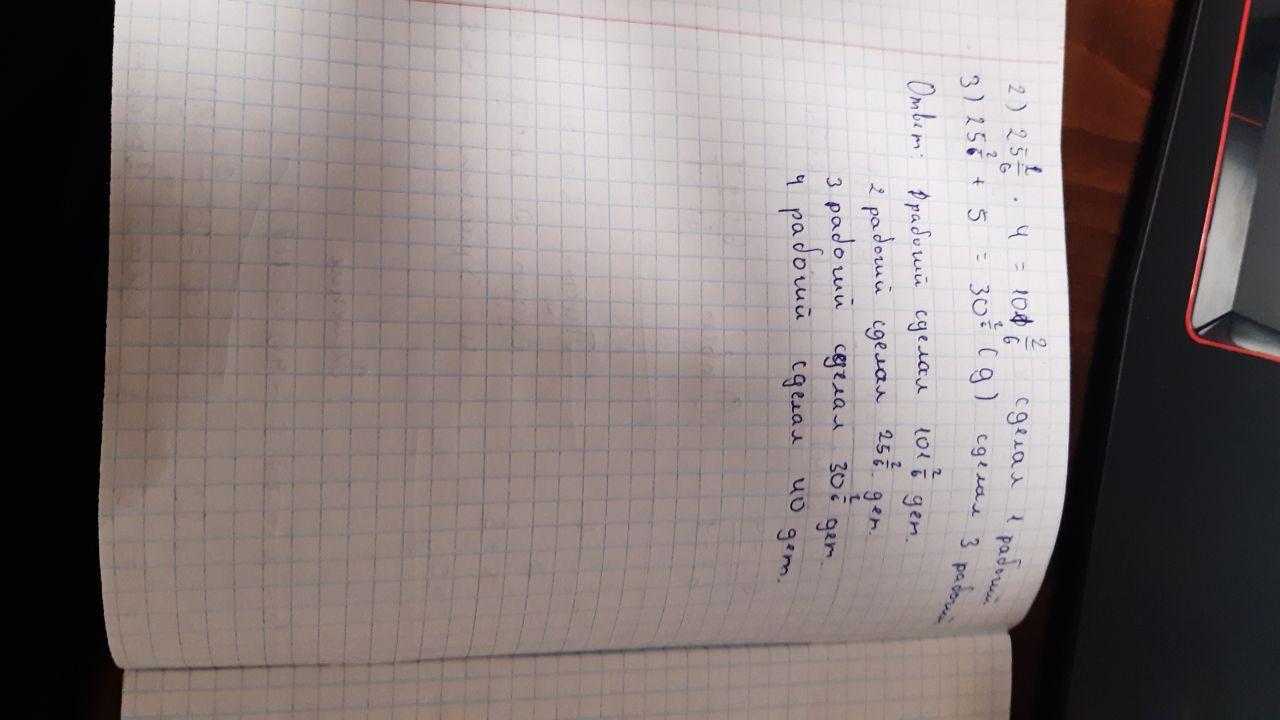 2) 25 2/6 · 4 = 101 2/6 сделал 1 рабочий
3) 25 2/6 + 5 = 30 2/6 (д) сделал 3 рабочий
Ответ: 1 рабочий сделал 101 2/6 дет.
2 рабочий сделал 25 2/6 дет.
3 рабочий сделал 30 2/6 дет.
4 рабочий сделал 40 дет.